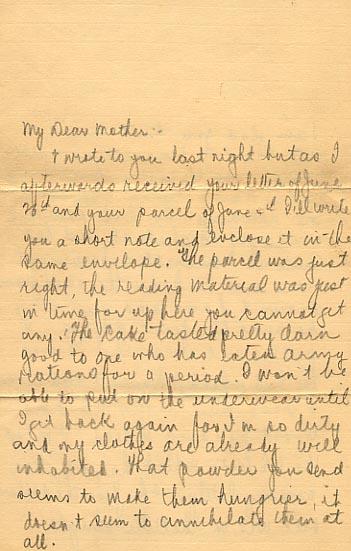 My Dear Mother:-
I wrote to you last night but as I
afterwards received your letter of June
26th and your parcel of June 4th I'll write
you a short note and enclose it in the
same envelope. The parcel was just
right, the reading material was just
in time for up here you cannot get
any. The cake tasted pretty darn
good to one who has eaten army
rations for a period. I won't be
able to put on the underwear until
I get back again for I'm so dirty
and my clothes are already well
inhabited. That powder you send
seems to make them hungrier, it
doesn't seem to annihilate them at
all.